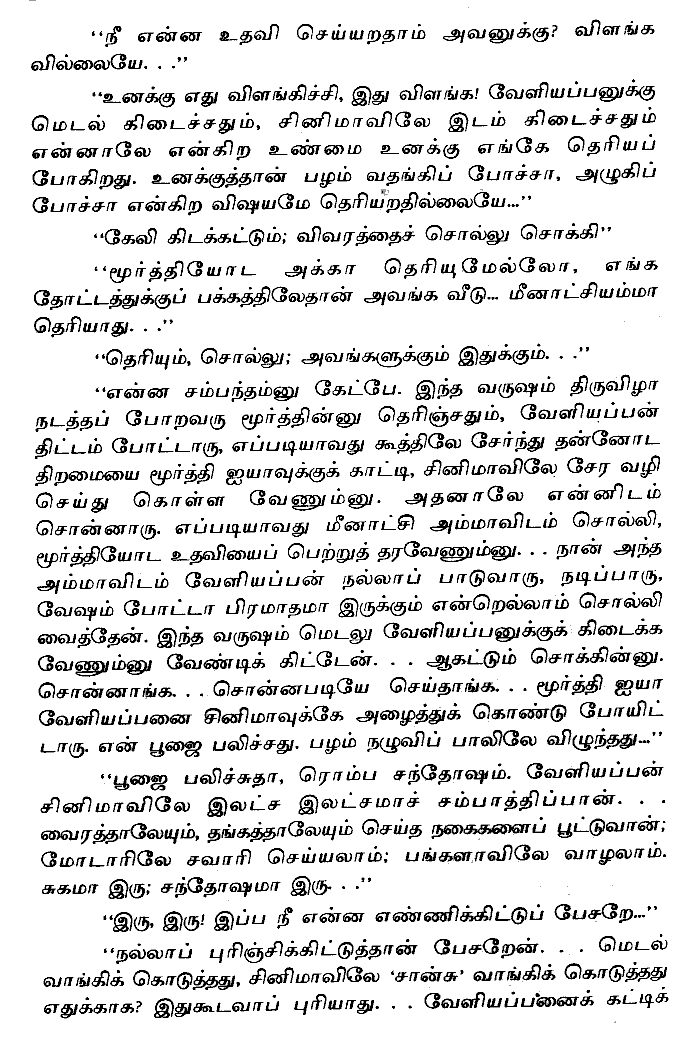 “நீ என்ன உதவி செய்யறதாம் அவனுக்கு? விளங்க
வில்லையே. . .”
“உனக்கு எது விளங்கிச்சி, இது விளங்க! வேலியப்பனுக்கு
மெடல் கிடைச்சதும், சினிமாவிலே இடம் கிடைச்சதும்
என்னாலே என்கிற உண்மை உனக்கு எங்கே தெரியப்
போகிறது. உனக்குத்தான் பழம் வதங்கிப் போச்சா, அழுகிப்
போச்சா என்கிற விஷயமே தெரியறதில்லையே...”
“கேலி கிடக்கட்டும்; விவரத்தைச் சொல்லு சொக்கி”
“மூர்த்தியோட அக்கா தெரியுமேல்லோ, எங்க
தோட்டத்துக்குப் பக்கத்திலேதான் அவங்க வீடு... மீனாட்சியம்மா
தெரியாது. . .”
“தெரியும், சொல்லு; அவங்களுக்கும் இதுக்கும். . .”
“என்ன சம்பந்தம்னு கேட்பே. இந்த வருஷம் திருவிழா
நடத்தப் போறவரு மூர்த்தின்னு தெரிஞ்சதும், வேலியப்பன்
திட்டம் போட்டாரு, எப்படியாவது கூத்திலே சேர்ந்து தன்னோட
திறமையை மூர்த்தி ஐயாவுக்குக் காட்டி, சினிமாவிலே சேர வழி
செய்து கொள்ள வேணும்னு. அதனாலே என்னிடம்
சொன்னாரு. எப்படியாவது மீனாட்சி அம்மாவிடம் சொல்லி,
மூர்த்தியோட உதவியைப் பெற்றுத் தரவேணும்னு. . . நான் அந்த
அம்மாவிடம் வேலியப்பன் நல்லாப் பாடுவாரு, நடிப்பாரு,
வேஷம் போட்டா பிரமாதமா இருக்கும் என்றெல்லாம் சொல்லி
வைத்தேன். இந்த வருஷம் மெடலு வேலியப்பனுக்குக் கிடைக்க
வேணும்னு வேண்டிக் கிட்டேன். . . ஆகட்டும் சொக்கின்னு.
சொன்னாங்க. . . சொன்னபடியே செய்தாங்க. . . மூர்த்தி ஐயா
வேலியப்பனை சினிமாவுக்கே அழைத்துக் கொண்டு போயிட்
டாரு. என் பூஜை பலிச்சது. பழம் நழுவிப் பாலிலே விழுந்தது...”
“பூஜை பலிச்சுதா, ரொம்ப சந்தோஷம். வேலியப்பன்
சினிமாவிலே இலட்ச இலட்சமாச் சம்பாத்திப்பான். . .
வைரத்தாலேயும், தங்கத்தாலேயும் செய்த நகைகளைப் பூட்டுவான்;
மோடாரிலே சவாரி செய்யலாம்; பங்களாவிலே வாழலாம்.
சுகமா இரு; சந்தோஷமா இரு. . .”
“இரு, இரு! இப்ப நீ என்ன எண்ணிக்கிட்டுப் பேசறே...”
“நல்லாப் புரிஞ்சிக்கிட்டுத்தான் பேசறேன். . . மெடல்
வாங்கிக் கொடுத்தது, சினிமாவிலே ‘சான்சு’ வாங்கிக் கொடுத்தது
எதுக்காக? இதுகூடவாப் புரியாது. . . வேலியப்பனைக் கட்டிக்